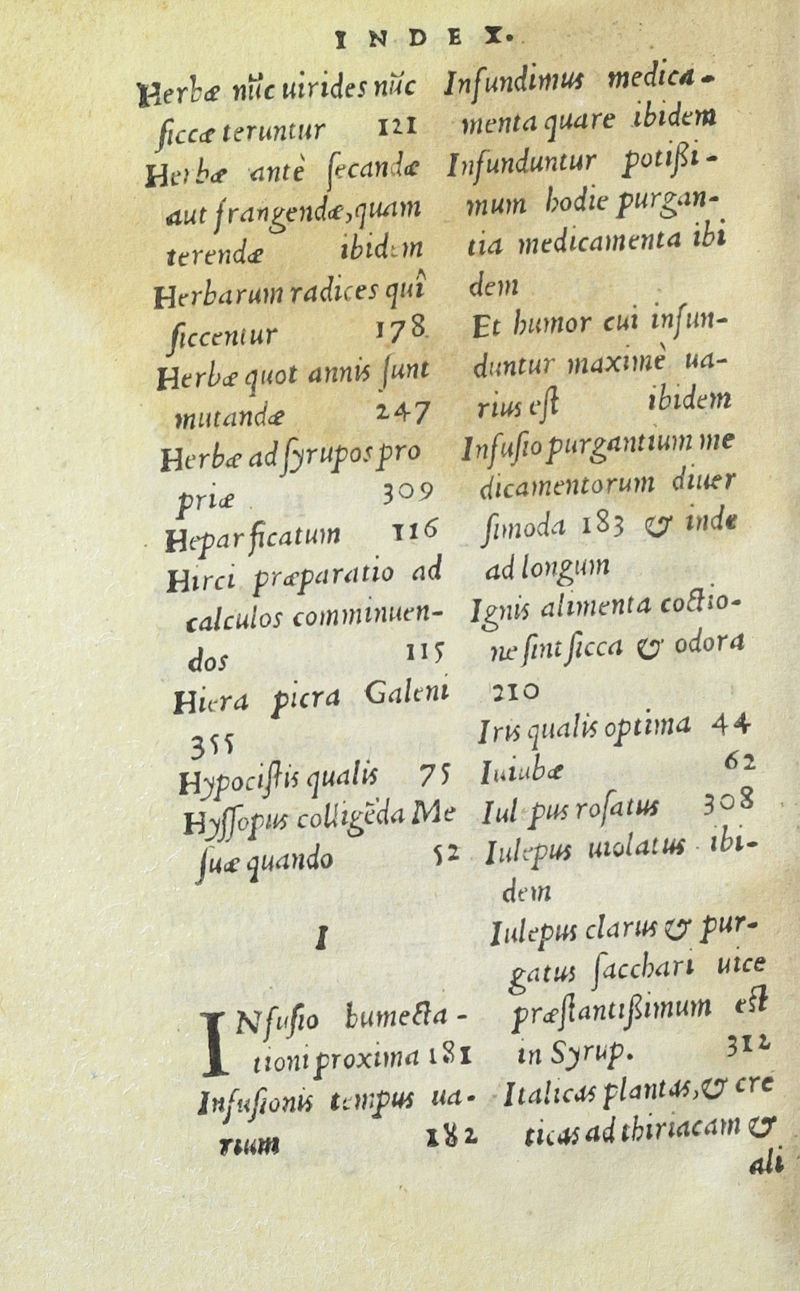 INDEX.
Herbæ nũc uirides nũc
ſiccæ teruntur 121
Herbæ antè ſecandæ
aut frangendæ, quam
terendæ ibidem
Herbarum radices quî
ſiccentur 178
Herbæ quot annis ſunt
mutandæ 247
Herbæ ad ſyrupos pro
priæ 309
Hepar ſicatum 116
Hirci præparatio ad
calculos comminuen-
dos 115
Hiera picra Galeni
355
Hypociſtis qualis 75
Hyſſopus colligẽda Me
ſuæ quando 52
I
INfuſio humecta-
tioni proxima 181
Infuſionis tempus ua-
rium 182
Infundimus medica-
menta quare ibidem
Infunduntur potißi-
mum hodie purgan-
tia medicamenta ibi
dem
Et humor cui infun-
duntur maximè ua-
rius eſt ibidem
Infuſio purgantium me
dicamentorum diuer
ſimoda 183 & inde
ad longum
Ignis alimenta coctio-
ne ſint ſicca & odora
210
Iris qualis optima 44
Iuiubæ 62
Iul pus roſatus 308
Iulepus uiolatus ibi-
dem
Iulepus clarus & pur-
gatus ſacchari uice
præſtantißimum eſt
in Syrup. 312
Italicas plantas, & cre
ticas ad thiriacam &
ali